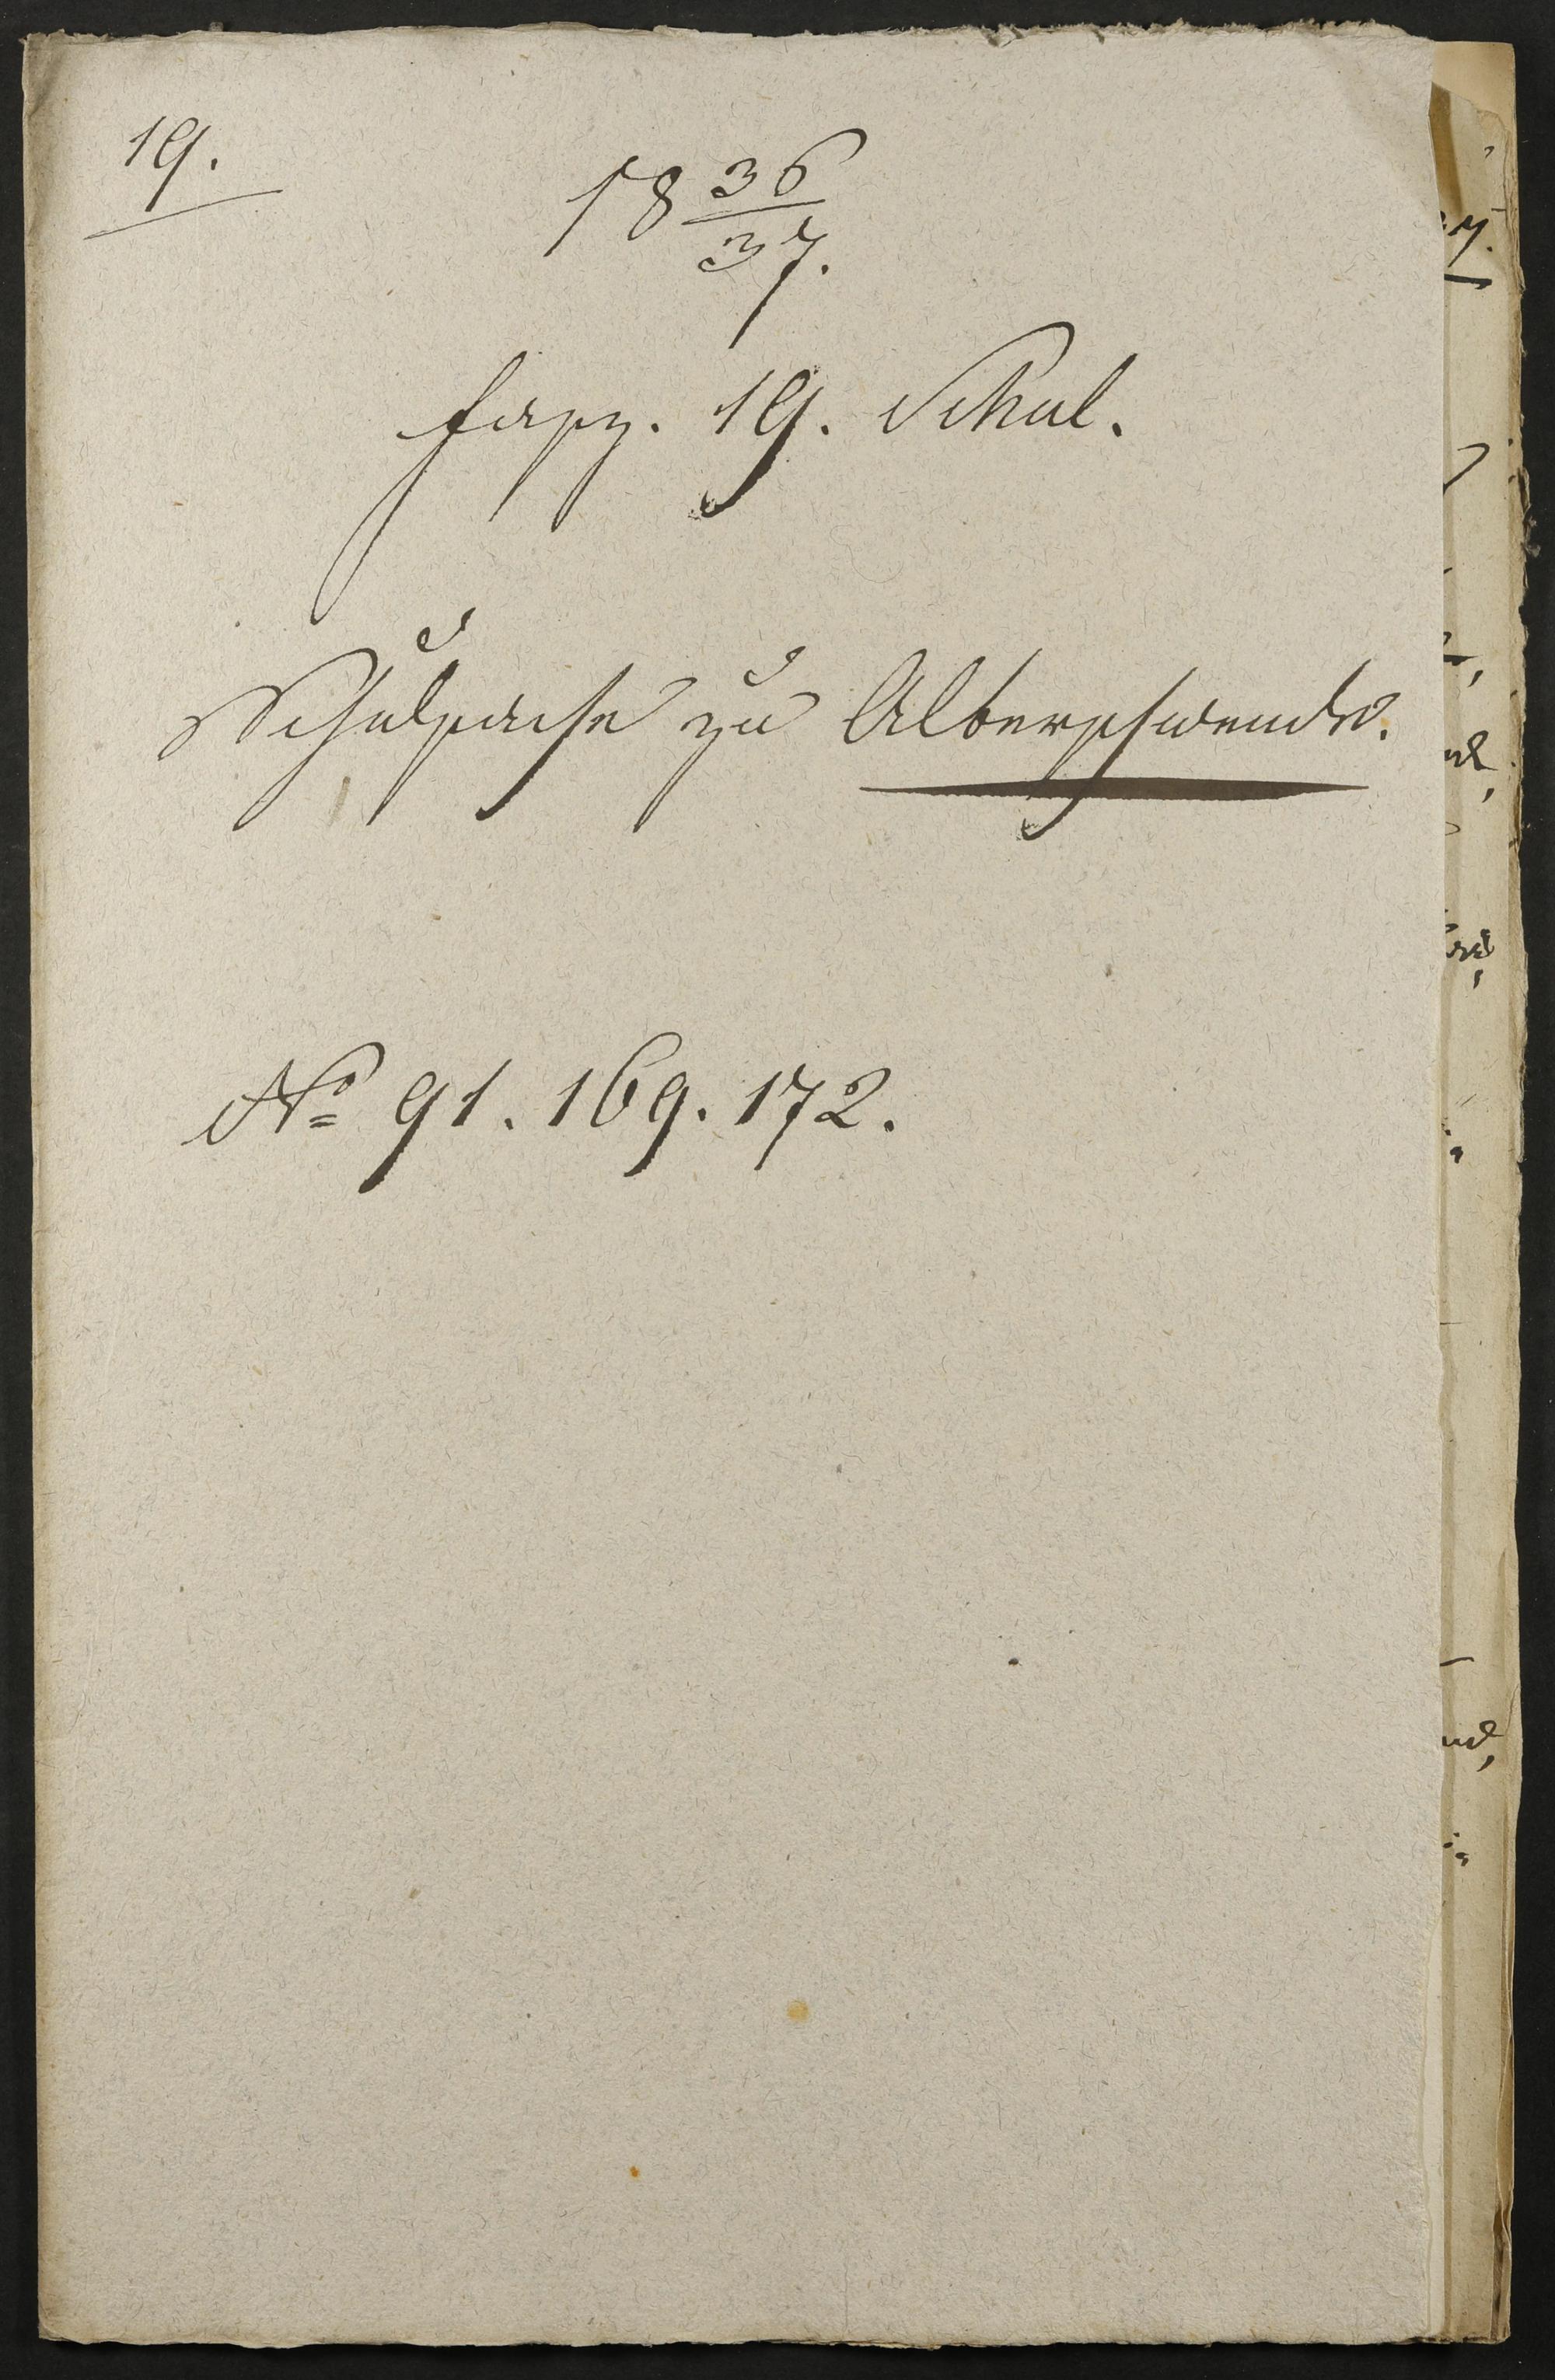 19.
18 36/37.
fasz. 19. Schul.
Schulsache zu Alberschwende.
No 91. 169. 172.